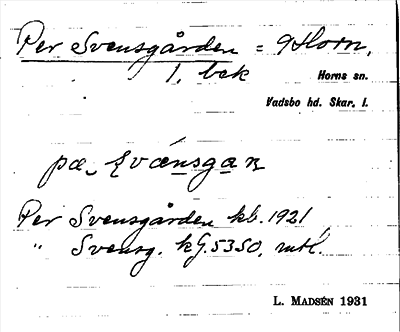 Per Svensgården = Horn,
1. bek
Horns sn.
Vadsbo hd. Skar. l.
Per Svensgården kb. 1921
" Svensg. kg. 5350, mtl.
L. MADSÉN 1931